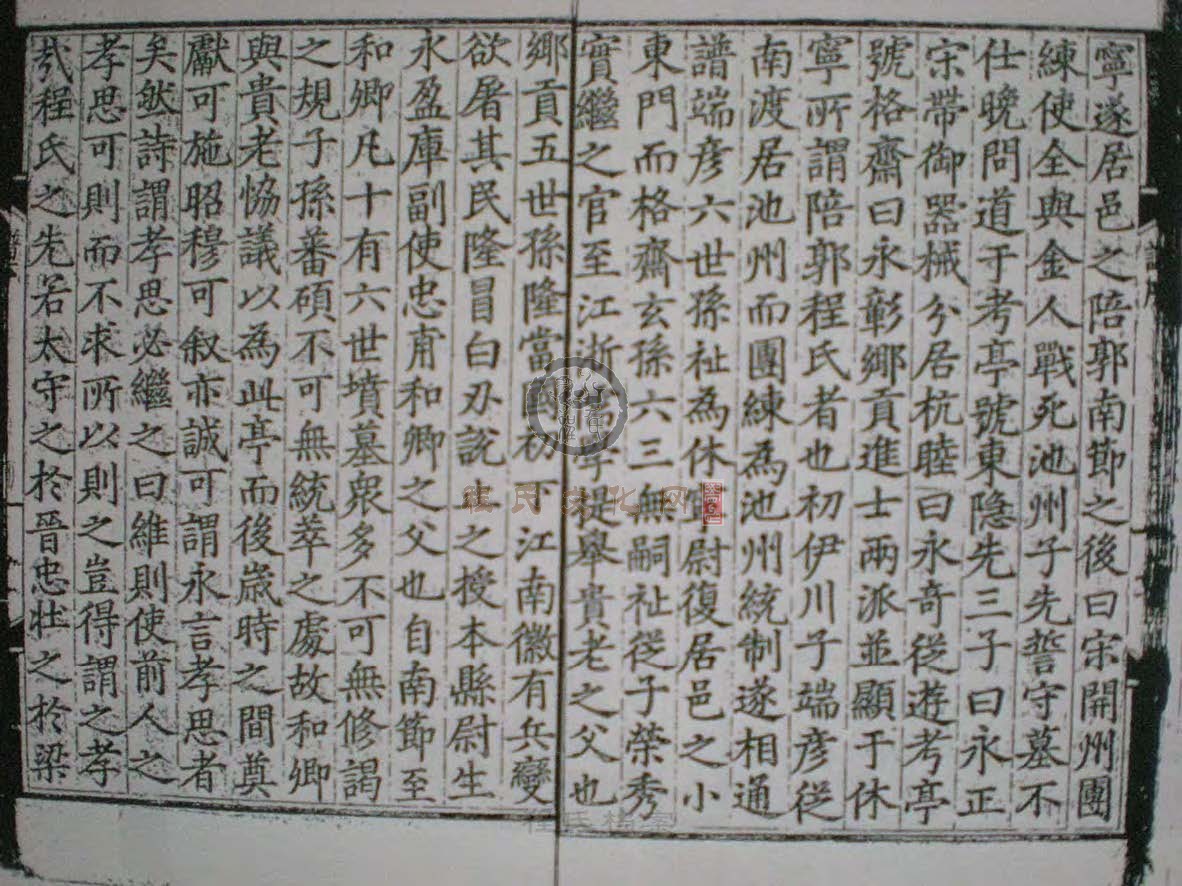 寧遂居邑之陪郭南節之後曰宋開州團
練使全與金人戰死池州子先誓守墓不
仕晚問道于考亭號東隐先三子曰永正
宋帶御器械分居杭睦曰永奇從遊考亭
號格齋曰永彰鄉貢進士兩派並顯于休
寧所謂陪郭程氏者也初伊川子端彦從
南渡居池州而團練為池州統制遂相通
譜端彦六世孫祉為休寧尉復居邑之小
東門而格齋玄孫六三無嗣祉從子榮秀
實繼之官至江浙學提舉貴老之父也
鄉貢五世孫隆當初下江南徽有兵變
欲屠其民隆冒白刃說止之授本縣尉生
永盈庫副使忠甫和卿之父也自南節至
和卿凡十有六世墳墓衆多不可無修謁
之規子孫蕃碩不可無統萃之處故和卿
與貴老恊議以為此亭而後歲時之間奠
獻可施昭穆可叙亦誠可謂永言孝思者
矣然詩謂孝思必繼之曰維則使前人之
孝思可則而不求所以則之豈得謂之孝
㢤程氏之先若太守之於晉忠壯之於梁
程氏文化网